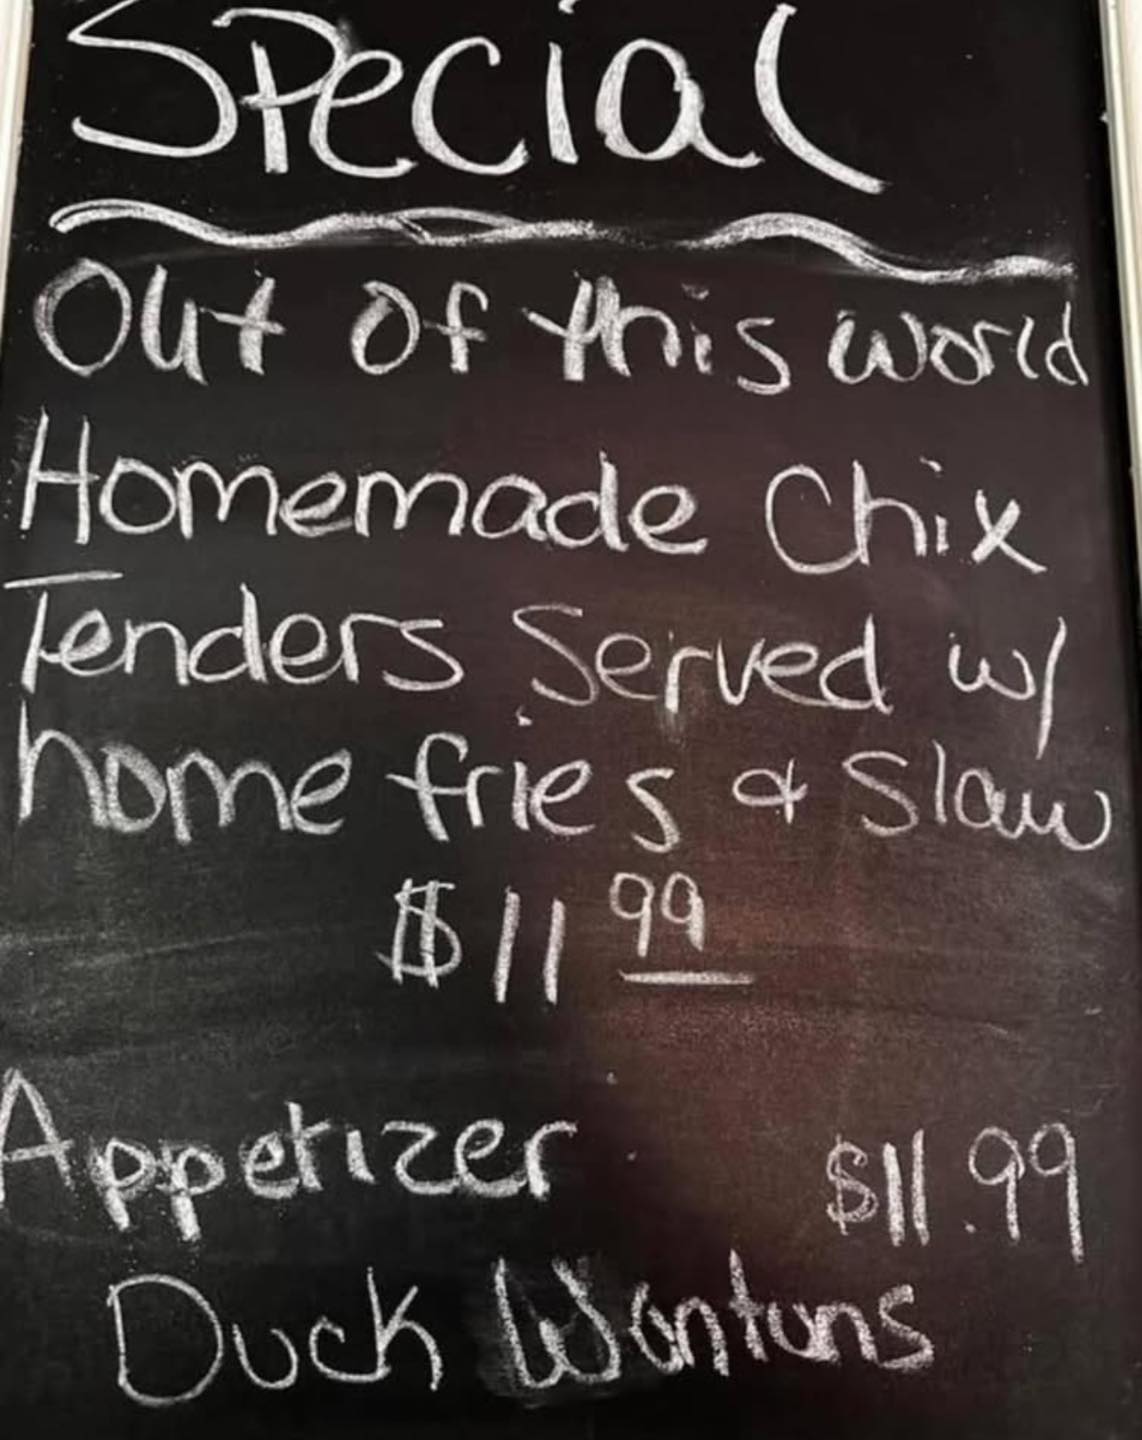 Special
Out of this world
Homemade Chix
Tenders Served w/
home fries & Slaw
$11 99
Appetizer $11.99
Duck Wontuns